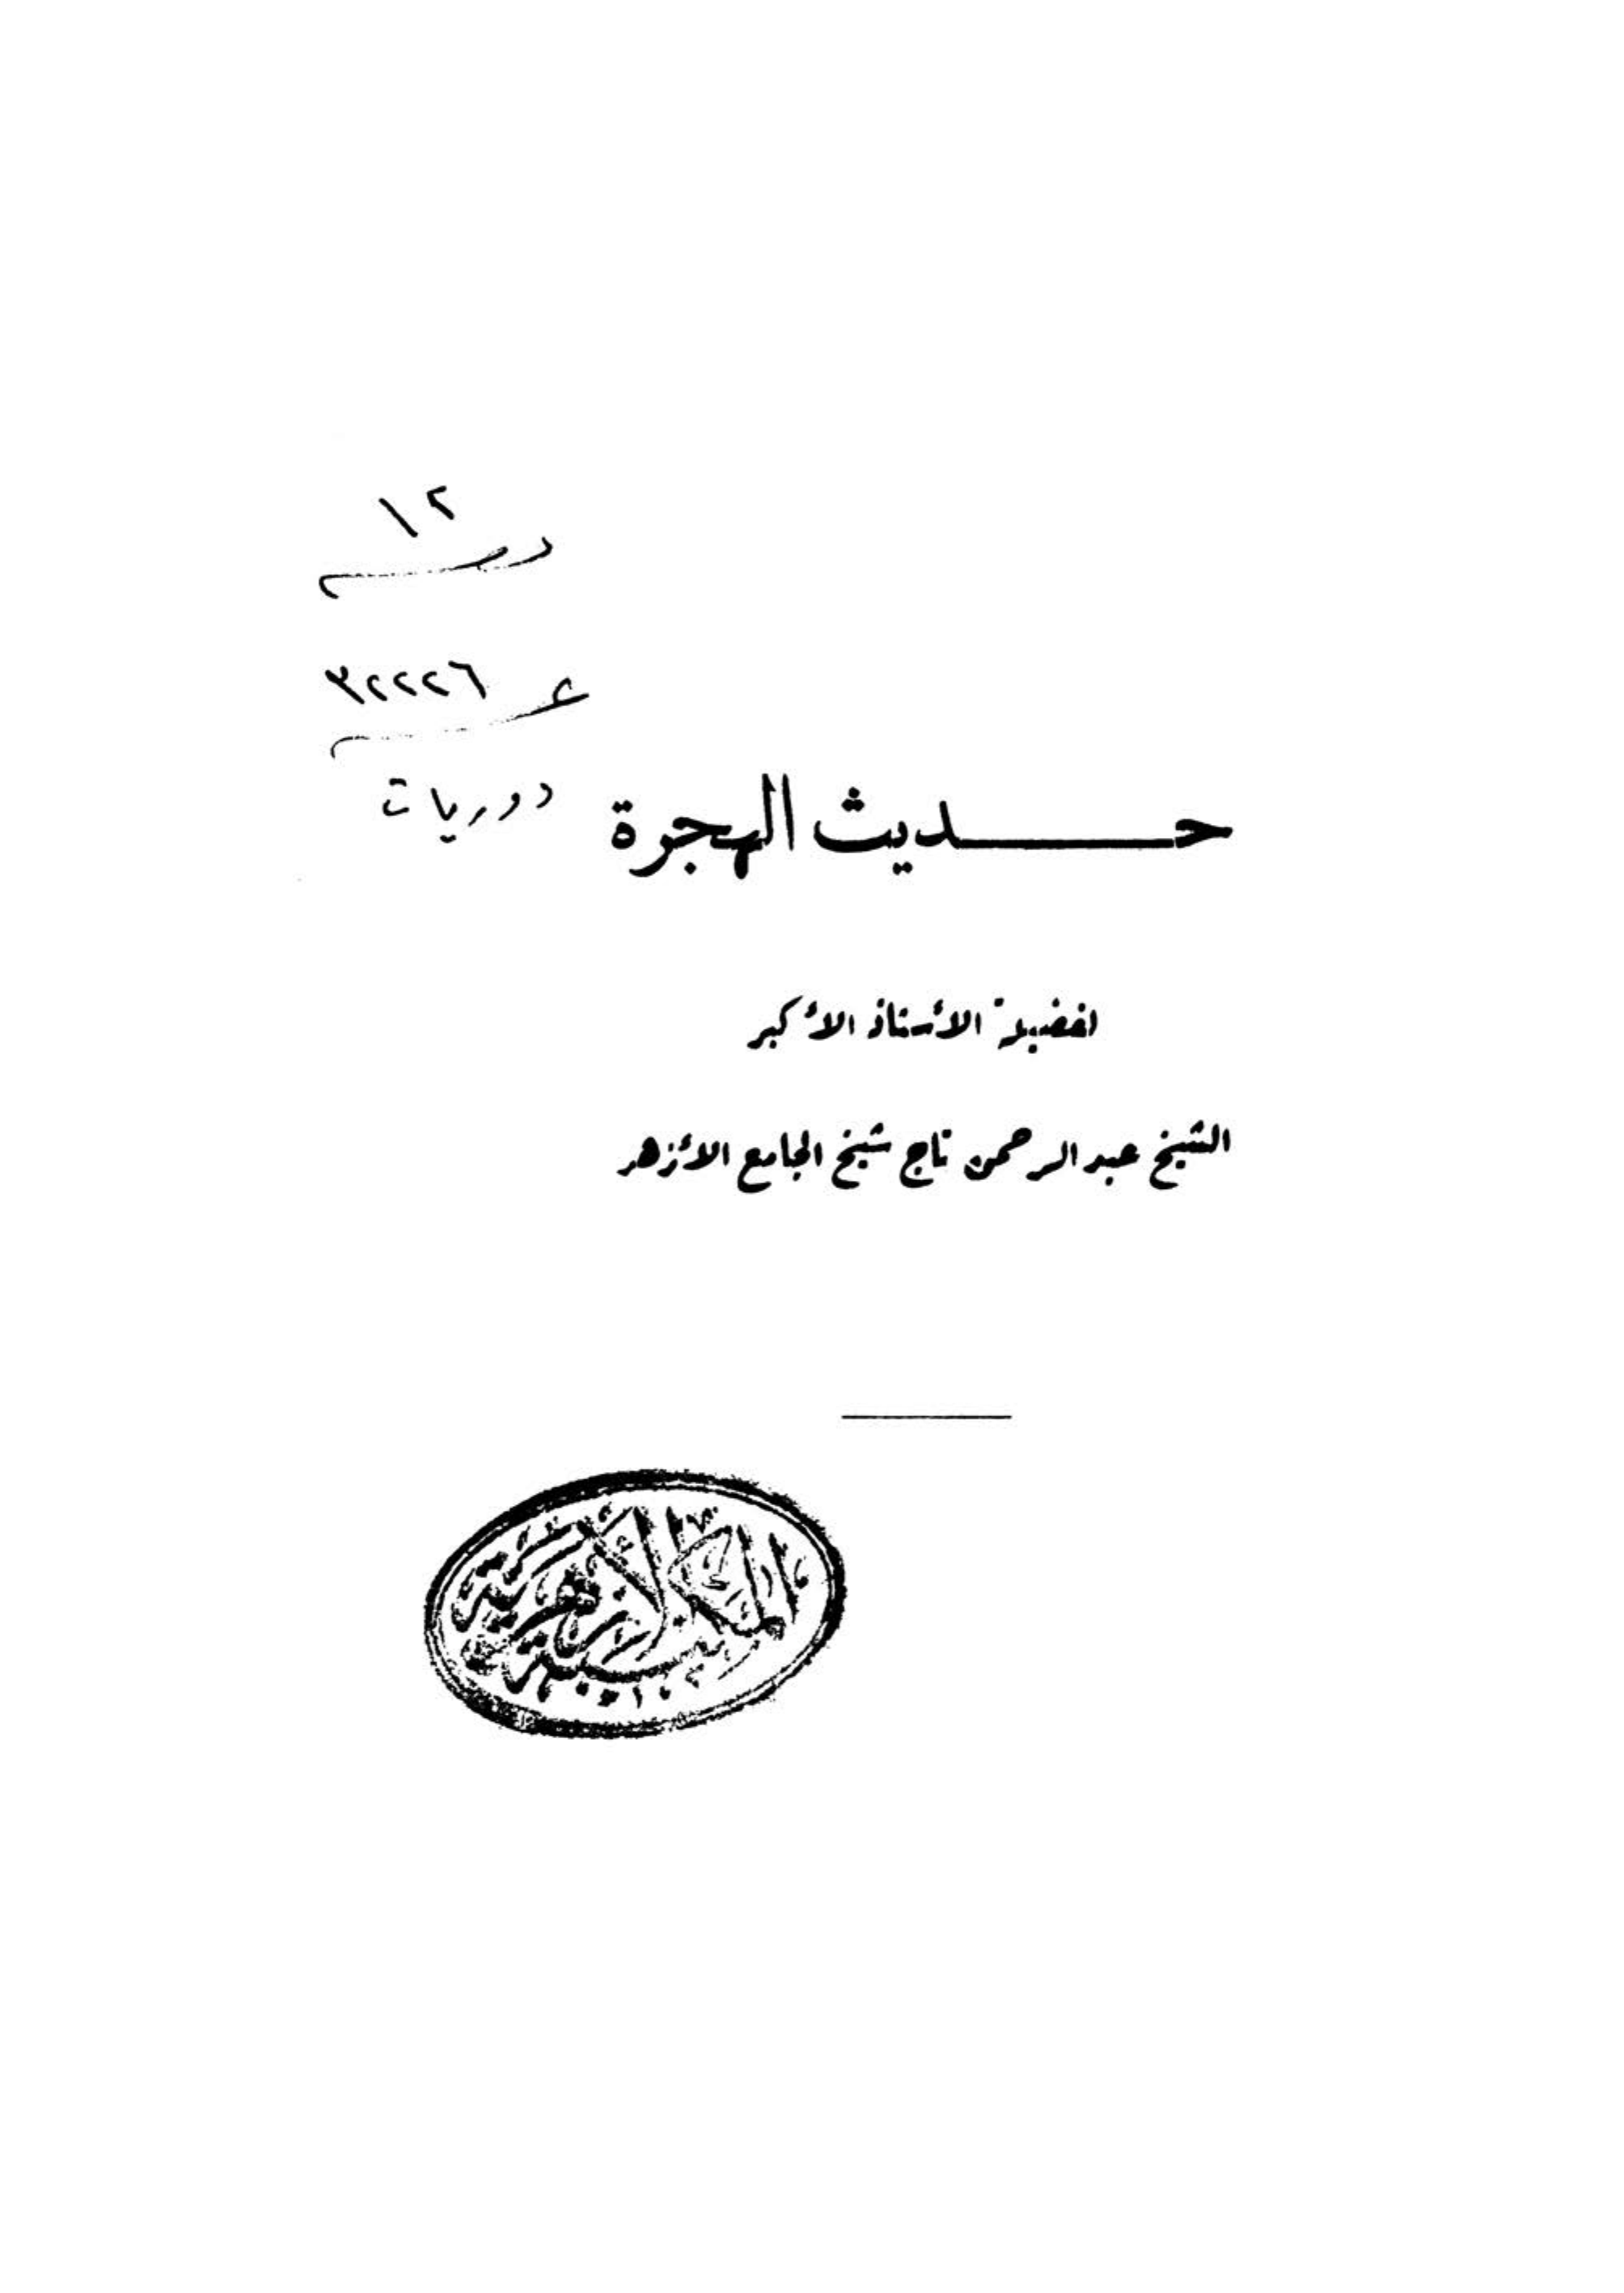 ١٢
در
٣٢٢٢٦ ع
دوريات
حديث الهجرة
لفضيلة الأستاذ الأكبر
الشيخ عبد الرحمن تاج شيخ الجامع الأزهر